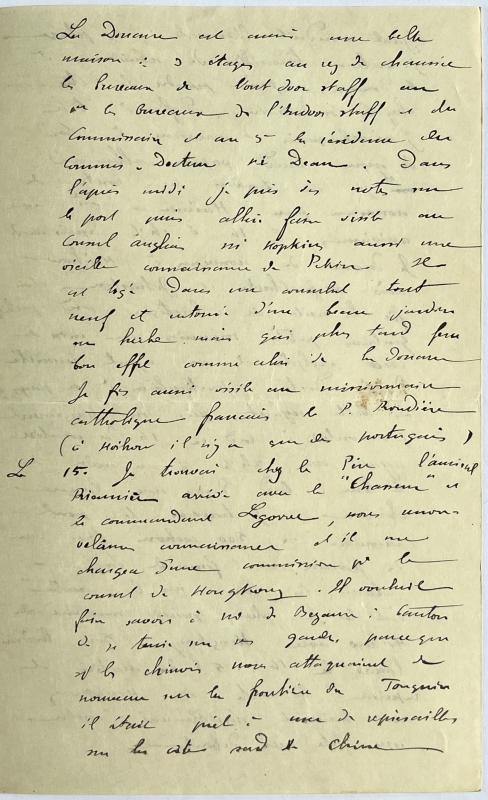 La Douane est aussi une belle
maison : 3 étages au rez de chaussée
les bureaux de l'out door staff au
les bureaux de l'Indoor staff et du
Commissaire et au la résidence du
Commis. Docteur Mr Dean. Dans
l'après midi je pris des notes sur
le port puis allai faire visite au
Consul Anglais Mr Hopkins aussi une
vieille connaissance de Pékin Il
est logé dans un consulat tout
neuf et entouré d'un beau jardin
en herbe mais qui plus tard fera
bon effet comme celui de la douane
Je fis aussi visite au missionnaire
catholique français le P.
(à Hoihow il n'y a que des portugais)
Le 15. Je trouvai chez le Père l'amiral
Rieunier arrivé avec le "Chasseur" et
le commandant nous
connaissance et il me
chargea d'une commission pr le
consul de Hongkong. Il voulait
faire savoir à Mr de Bezaure à Canton
de se tenir sur ses gardes parceque
si les chinois nous attaquaient de
nouveau sur la frontière du Tonquin
il était prêt à user de représailles
sur les côtes sud de Chine